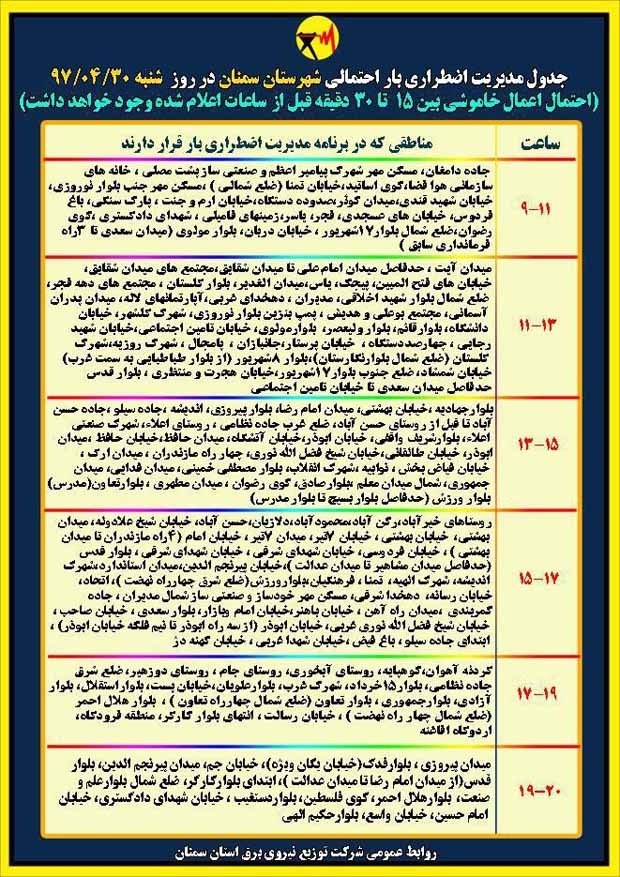 جدول مدیریت اضطراری بار احتمالی شهرستان سمنان در روز شنبه ۹۷/۰۴/۳۰
(احتمال اعمال خاموشی بین ۱۵ تا ۳۰ دقیقه قبل از ساعات اعلام شده وجود خواهد داشت)
ساعت
مناطقی که در برنامه مدیریت اضطراری بار قرار دارند
۹-۱۱
جاده دامغان، مسکن مهر شهرک پیامبر اعظم و صنعتی ساز پشت مصلی ، خانه های
سازمانی هوا فضا،کوی اساتید،خیابان تمنا (ضلع شمالی ) ،مسکن مهر جنب بلوار نوروزی،
خیابان شهید قندی،میدان کوثر،صدوده دستگاه،خیابان ارم و جنت ، پارک سنگی، باغ
فردوس، خیابان های مسجدی، فجر، یاسر،زمینهای فامیلی ، شهدای دادگستری ،کوی
رضوان،ضلع شمال بلوار۱۷شهریور ، خیابان دربان، بلوار مولوی (میدان سعدی تا ۳راه
فرمانداری سابق )
۱۱-۱۳
میدان آیت ، حدفاصل میدان امام علی تا میدان شقایق،مجتمع های میدان شقایق،
خیابان های فتح المبین، پیچک، یاس،میدان الغدیر، بلوار گلستان ، مجتمع های دهه فجر،
ضلع شمال بلوار شهید اخلاقی، مدیران ، دهخدای غربی،آپارتمانهای لاله، میدان پدران
آسمانی، مجتمع بوعلی و هدیش ، پمپ بنزین بلوار نوروزی، شهرک گلشهر، خیابان
دانشگاه، بلوارقائم، بلوار ولیعصر، بلوارمولوی، خیابان تامین اجتماعی،خیابان شهید
رجایی ، چهارصددستگاه ، خیابان پرستار،جانبازان ، پامچال ، شهرک روزیه،شهرک
گلستان (ضلع شمال بلوارنگارستان)،بلوار ۸شهریور (از بلوار طباطبایی به سمت غرب)
خیابان شمشاد، ضلع جنوب بلوار۱۷شهریور،خیابان هجرت و منتظری ، بلوار قدس
حدفاصل میدان سعدی تا خیابان تامین اجتماعی
۱۳-۱۵
بلوارجهادیه ،خیابان بهشتی، میدان امام رضا، بلوارپیروزی، اندیشه ،جاده سیلو ،جاده حسن
آباد تا قبل از روستای حسن آباد، ضلع غرب جاده نظامی ، روستای اعلاء، شهرک صنعتی
اعلاء، بلوارشریف واقفی، خیابان ابوذر،خیابان آتشگاه، میدان حافظ،خیابان حافظ ،میدان
ابوذر، خیابان طالقانی،خیابان شیخ فضل الله نوری، چهار راه مازندران ، میدان ارک ،
خیابان فیاض بخش ، نوابیه ،شهرک انقلاب، بلوار مصطفی خمینی، میدان فدایی، میدان
جمهوری، شمال میدان معلم ،بلوارصادق، کوی رضوان ، میدان مطهری ، بلوارتعاون(مدرس)
بلوار ورزش (حدفاصل بلوار بسیج تا بلوار مدرس)
۱۵-۱۷
روستاهای خیرآباد،رکن آباد،محمودآباد،دلازیان،حسن آباد، خیابان شیخ علاءالدوله، میدان
بهشتی، خیابان بهشتی ، خیابان ۷تیر، میدان ۷تیر، خیابان امام (۴راه مازندران تا میدان
بهشتی ) ، خیابان فردوسی، خیابان شهدای شرقی ، خیابان شهدای شرقی ، بلوار قدس
(حدفاصل میدان مشاهیر تا میدان عدالت )،خیابان پیرنجم الدین،میدان استاندارد،شهرک
اندیشه، شهرک الهیه، تمنا ، فرهنگیان،بلوارورزش(ضلع شرق چهارراه نهضت )، اتحاد،
خیابان رسانه، دهخدا شرقی، مسکن مهر خودساز و صنعتی ساز شمال مدیران ، جاده
کمربندی ،میدان راه آهن ، خیابان باهنر،خیابان امام وبازار، بلوار سعدی ، خیابان صاحب ،
خیابان شیخ فضل الله نوری غربی، خیابان ابوذر (از سه راه ابوذر تا نیم فلکه خیابان ابوذر) ،
ابتدای جاده سیلو ، باغ فیض، خیابان شهدا غربی ، خیابان کهنه دژ
۱۷-۱۹
گردنه آهوان،کوهپایه، روستای آبخوری، روستای جام ، روستای دوزهیر، ضلع شرق
جاده نظامی، بلوار۱۵خرداد، شهرک غرب، بلوارعلویان،خیابان پست، بلواراستقلال، بلوار
آزادی، بلوارجمهوری ، بلوار تعاون (ضلع شمال چهارراه تعاون ) ، بلوار هلال احمر
(ضلع شمال چهار راه نهضت ) ، خیابان رسالت ، انتهای بلوار کارگر، منطقه فرودگاه،
اردوگاه افاغنه
۱۹-۲۰
میدان پیروزی ، بلوارفدک(خیابان یگان ویژه)، خیابان جم، میدان پیرنجم الدین، بلوار
قدس(از میدان امام رضا تا میدان عدالت )، ابتدای بلوارکارگر، ضلع شمال بلوارعلم و
صنعت، بلوارهلال احمر، کوی فلسطین، بلواردستغیب ، خیابان شهدای دادگستری، خیابان
امام حسین، خیابان واسع، بلوارحکیم الهی
روابط عمومی شرکت توزیع نیروی برق استان سمنان